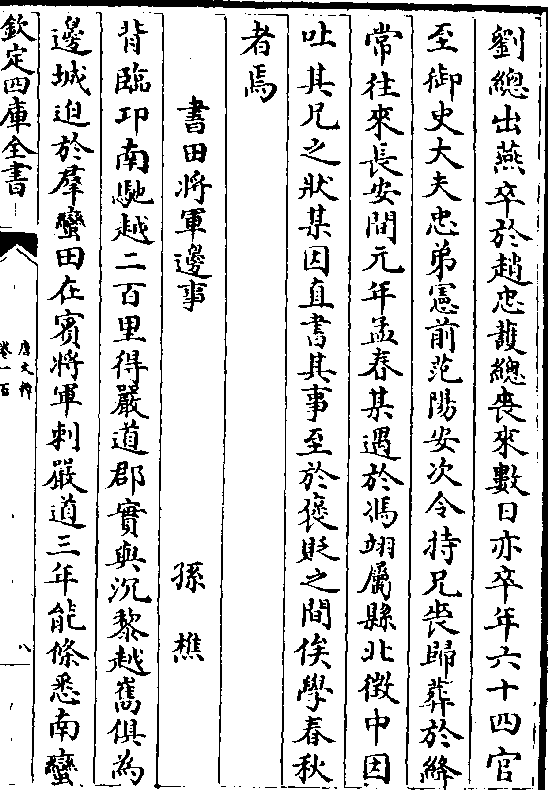 劉總出燕卒於趙忠護總喪來數日亦卒年六十四官
至御史大夫忠弟憲前范陽安次令持兄喪歸葬於絳
常往來長安間元年孟春某遇於馮翊屬縣北徴中因
吐其兄之狀某因直書其事至於褒貶之間俟學春秋
者焉
書田將軍邊事　孫樵
背臨邛南馳越二百里得嚴道郡實與沉黎越嶲俱為
邊城迫於羣蠻田在賓將軍刺嚴道三年能條悉南蠻
欽定四庫全書
唐文粹
卷一百
八